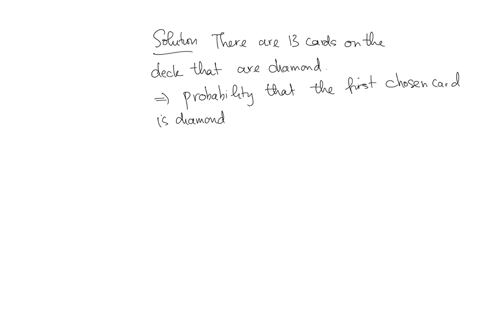 Solution There are 13 cards on the
deck that are diamond.
⇒ probability that the first chosen card
is diamond